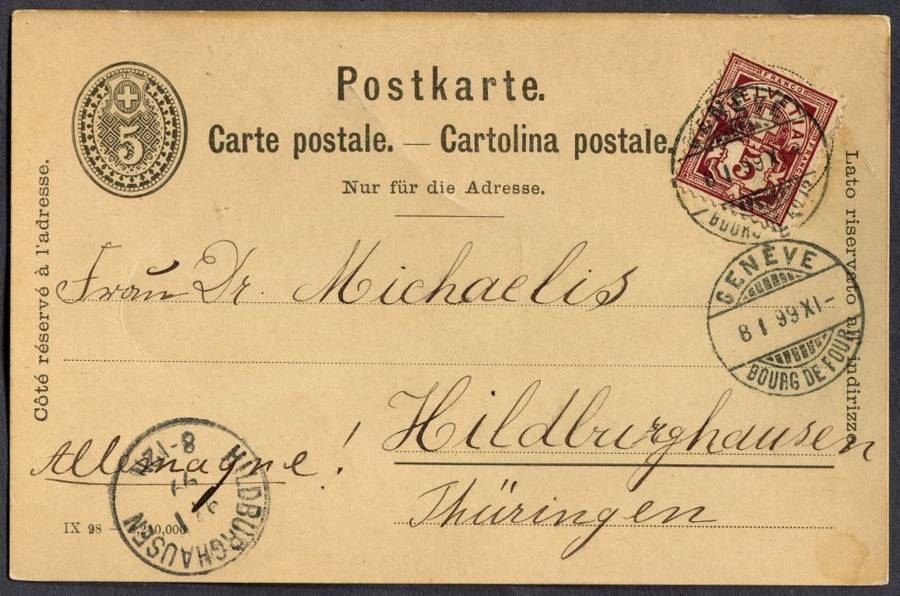 5
Postkarte.
Carte postale. — Cartolina postale.
Nur für die Adresse.
Côté réservé à l'adresse.
Lato riservato all indirizzo
FRANCO
HELVETIA
5
8 I 99 XI
GENÈVE
8 I 99 XI–
BOURG DE FOUR
Frau Dr. Michaelis
Hildburghausen
Allemagne!
Thüringen
HILDBURGHAUSEN
IX 98